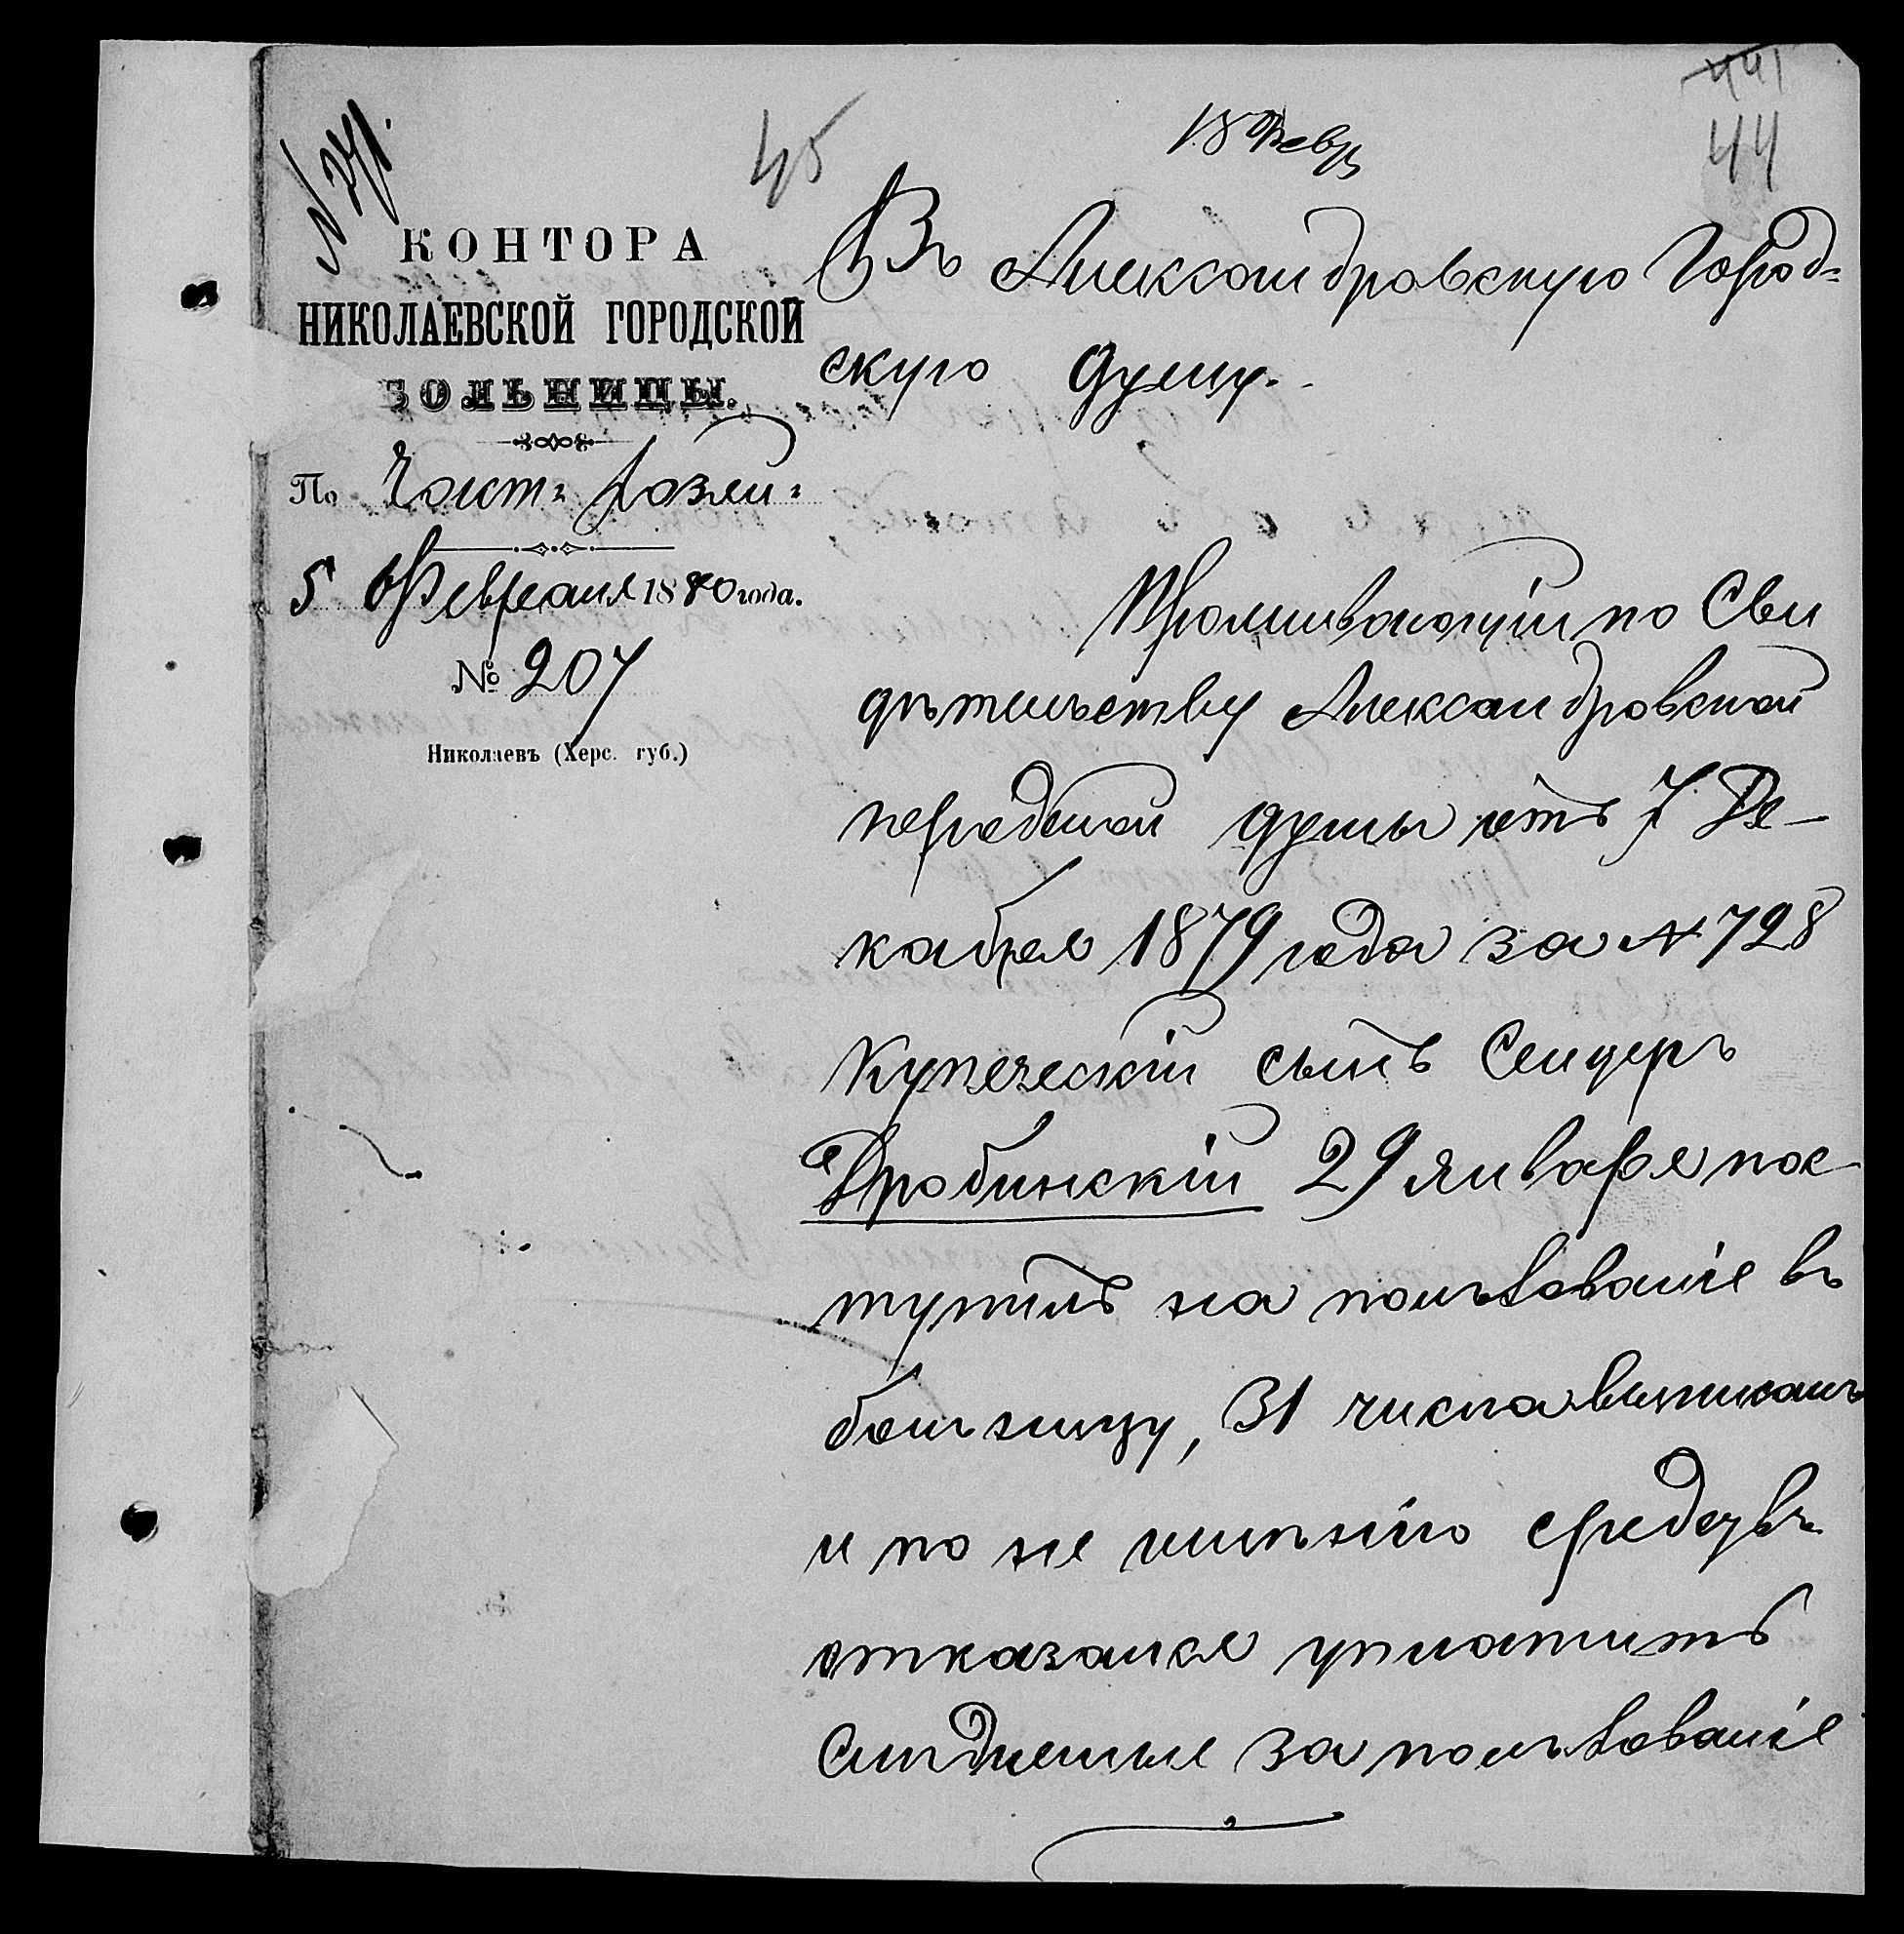 441
44
45
18 Февр
№ 271.
КОНТОРА
НИКОЛАЕВСКОЙ ГОРОДСКОЙ
БОЛЬНИЦЫ.
По Част. Хозяй.
5 Февраля 1880 года.
№ 207
Николаевъ (Херс. губ.)
Въ Александровскую Город-
скую Думу.
Проживающій по Сви
дѣтельству Александровской
городской думы отъ 7 Де-
кабря 1879 года за № 728
Купеческій сынъ Сендеръ
Дробинскій 29 января пос-
тупилъ на пользованіе въ
больницу, 31 числа выписанъ
и по не имѣнію средствъ
отказался уплатить
Слѣдуемые за пользованіе